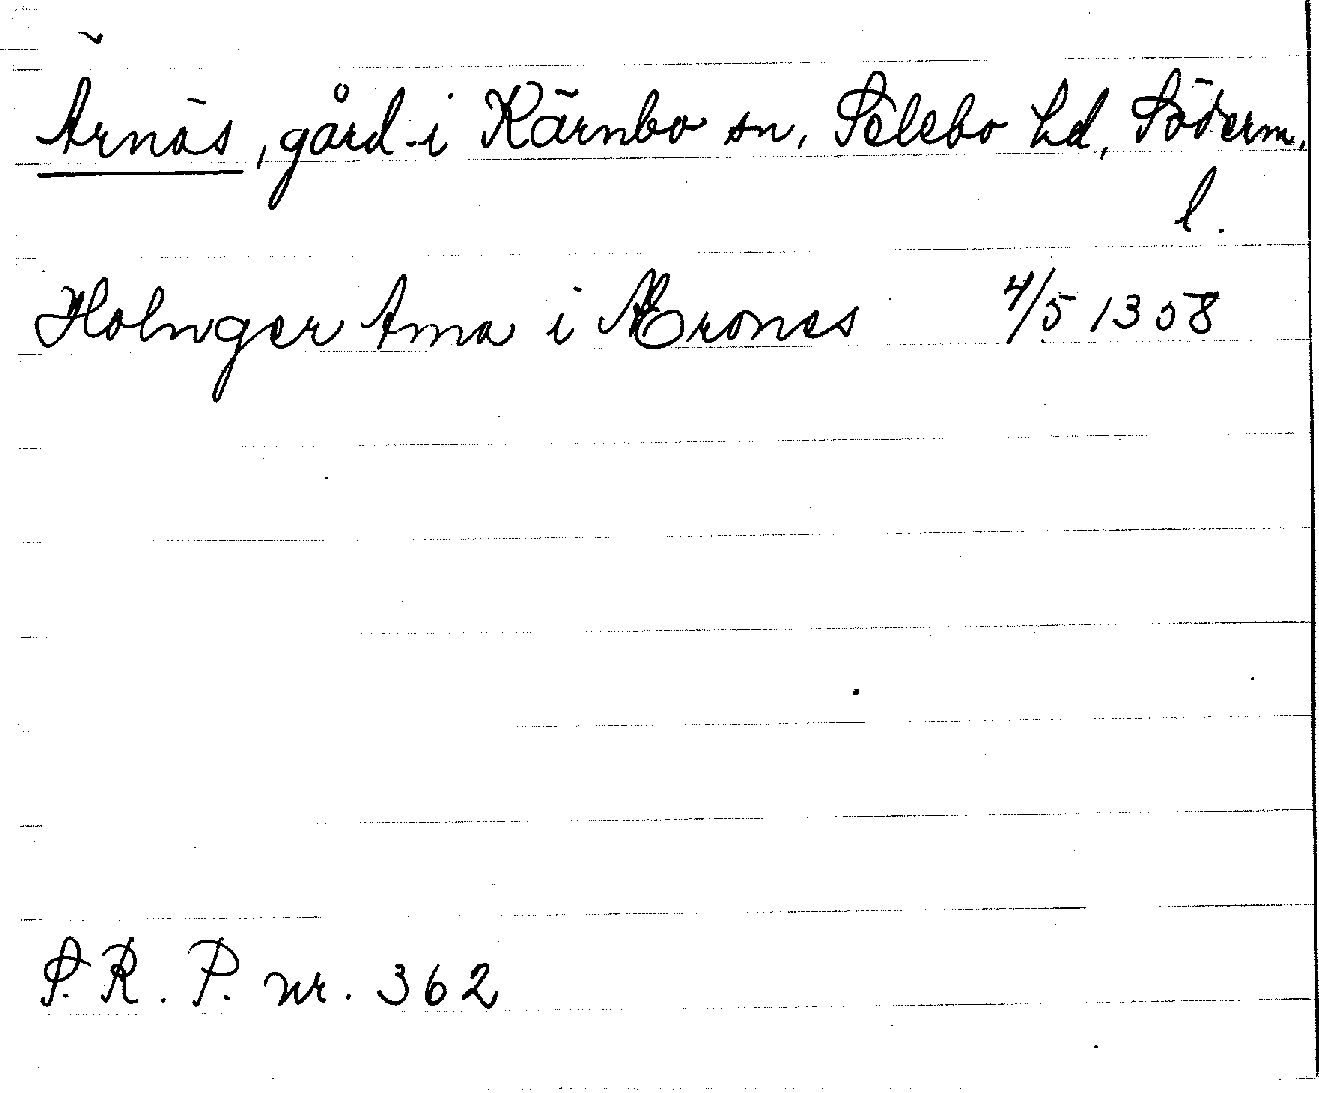 Ärnäs, gård i Kärnbo sn, Selebo hd, Söderm.
l.
Holmger Ama i Ærones 4/5 1358
S.R.P. nr. 362